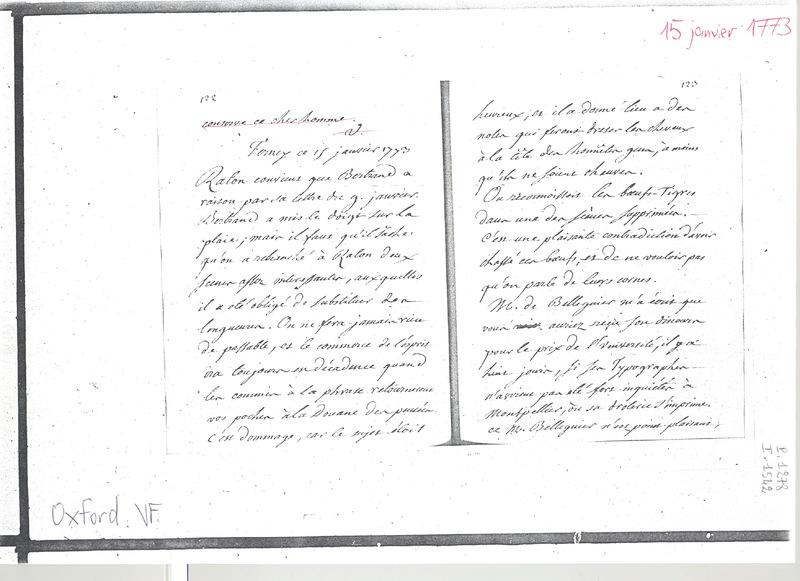 15 janvier 1773
122
conserve ce cher homme.
V.
Ferney ce 15 janvier 1773
Raton convient que Bertrand a
raison par sa lettre du 9. janvier.
Bertrand a mis le doigt sur la
plaie; mais il faut qu'il sache
qu'on a retranché à Raton deux
scenes assez interessantes, auxquelles
il a été obligé de substituer des
longueurs. On ne fera jamais rien
de passable, et le commerce de l'esprit
ira toujours en décadence quand
les commis à la phrase retourneront
vos poches à la Douane des pensées.
C'est dommage, car le sujet étoit
123
heureux, et il a donné lieu a des
notes qui feront dresser les cheveux
à la tête des honnêtes gens, à moins
qu'ils ne soient chauves.
On reconnoissoit les bœufs-tigres
dans une des scenes supprimées.
C'est une plaisante contradiction d'avoir
chassé ces bœufs, et de ne vouloir pas
qu'on parle de leurs cornes.
M. de Belleguier m'a écrit que
vous auriez reçû son discours
pour le prix de l'Université, il y a
huit jours, si ses Typographes
n'avoient pas été fort inquiétés à
Montpellier, où sa drolerie s'imprime.
ce M. Belleguier n'est point plaisant,
Oxford. VF.
P. 1278
T. 1542